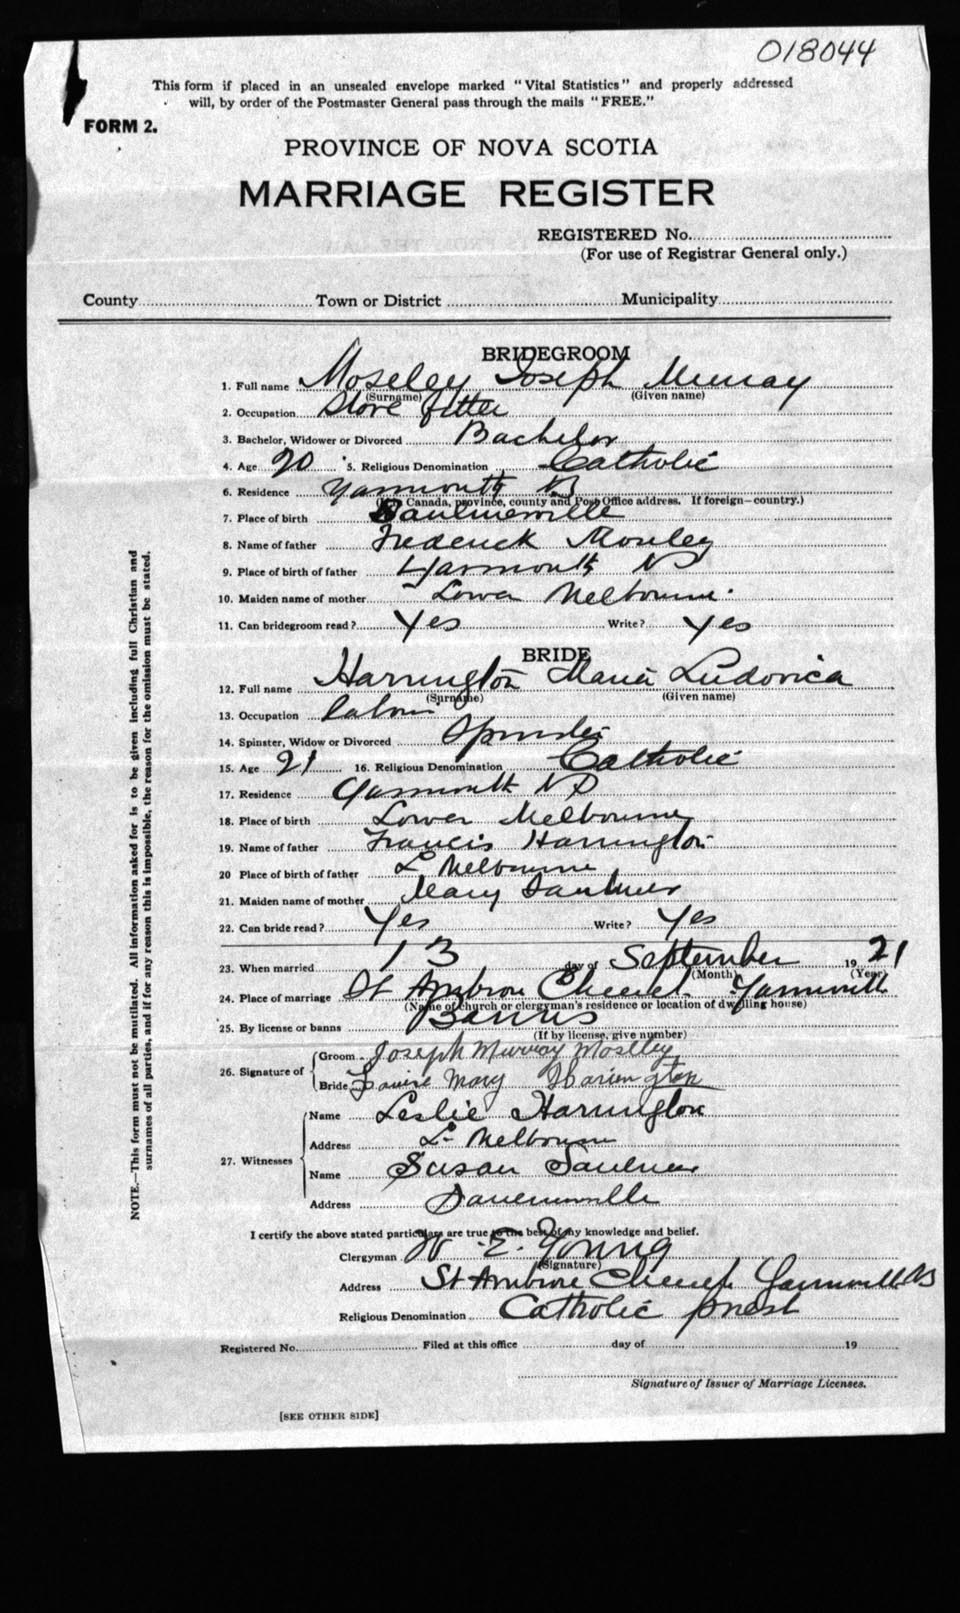 018044
This form if placed in an unsealed envelope marked "Vital Statistics" and properly addressed
will, by order of the Postmaster General pass through the mails "FREE."
FORM 2.
PROVINCE OF NOVA SCOTIA
MARRIAGE REGISTER
REGISTERED No.
(For use of Registrar General only.)
County Town or District Municipality
BRIDEGROOM
1. Full name Moseley Joseph Murray
(Surname) (Given name)
2. Occupation Stove fitter
3. Bachelor, Widower or Divorced Bachelor
4. Age 20 5. Religious Denomination Catholic
6. Residence Yarmouth NS
Canada, province, county and Post Office address. If foreign—country.)
7. Place of birth Saulnierville
8. Name of father Frederick Mosley
9. Place of birth of father Yarmouth NS
10. Maiden name of mother Lower Melbourne
11. Can bridegroom read? Yes Write? Yes
BRIDE
12. Full name Harrington Maria Ludovica
(Surname) (Given name)
13. Occupation
14. Spinster, Widow or Divorced Spinster
15. Age 21 16. Religious Denomination Catholic
17. Residence Yarmouth NS
18. Place of birth Lower Melbourne
19. Name of father Francis Harrington
20 Place of birth of father L Melbourne
21. Maiden name of mother Mary Saulnier
22. Can bride read? Yes Write? Yes
23. When married 13 day of September 1921
(Month) (Year)
24. Place of marriage St Ambrose Church Yarmouth
(Name of church or clergyman's residence or location of dwelling house)
25. By license or banns Banns
(If by license, give number)
26. Signature of Groom Joseph Murray Moseley
Bride Louise Mary Harrington
27. Witnesses Name Leslie Harrington
Address L- Melbourne
Name Susan Saulnier
Address Saulnierville
I certify the above stated particulars are true to the best of my knowledge and belief.
Clergyman W. E. Young
(Signature)
Address St Ambrose Church Yarmouth NS
Religious Denomination Catholic priest
Registered No. Filed at this office day of 19
Signature of Issuer of Marriage Licenses.
[SEE OTHER SIDE]
NOTE.—This form must not be mutilated. All information asked for is to be given including full Christian and
surnames of all parties, and if for any reason this is impossible, the reason for the omission must be stated.